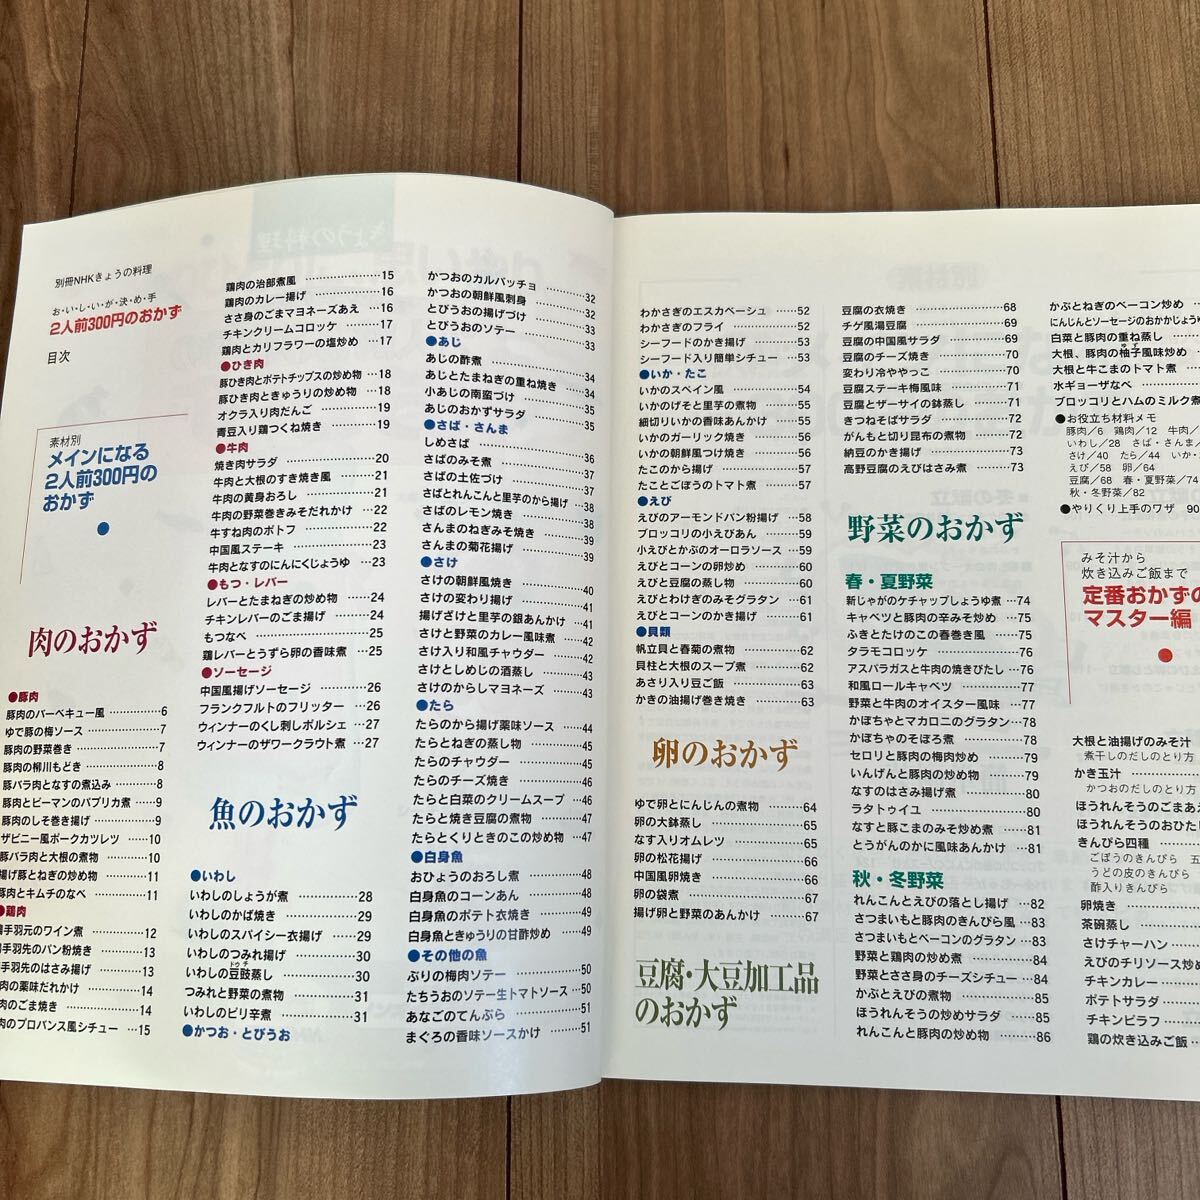 別冊NHKきょうの料理
お・い・し・い・が・決・め・手
2人前300円のおかず
目次
素材別
メインになる
2人前300円の
おかず
肉のおかず
●豚肉
豚肉のバーベキュー風 …………6
ゆで豚の梅ソース …………7
豚肉の野菜巻き …………7
豚肉の柳川もどき …………8
豚バラ肉となすの煮込み …………8
豚肉とピーマンのパプリカ煮 …9
豚肉のしそ巻き揚げ …………9
ザビニー風ポークカツレツ ……10
豚バラ肉と大根の煮物 …………10
揚げ豚とねぎの炒め物 …………11
豚肉とキムチのなべ …………11
●鶏肉
鶏手羽元のワイン煮 …………12
手羽先のパン粉焼き …………13
手羽先のはさみ揚げ …………13
肉の薬味だれかけ …………14
肉のごま焼き …………14
肉のプロバンス風シチュー …15
鶏肉の治部煮風 …………15
鶏肉のカレー揚げ …………16
ささ身のごまマヨネーズあえ …16
チキンクリームコロッケ ………17
鶏肉とカリフラワーの塩炒め …17
●ひき肉
豚ひき肉とポテトチップスの炒め物 …18
豚ひき肉ときゅうりの炒め物 …18
オクラ入り肉だんご …………19
青豆入り鶏つくね焼き …………19
●牛肉
焼き肉サラダ …………20
牛肉と大根のすき焼き風 ………21
牛肉の黄身おろし …………21
牛肉の野菜巻きみそだれかけ …22
牛すね肉のポトフ …………22
中国風ステーキ …………23
牛肉となすのにんにくじょうゆ …23
●もつ・レバー
レバーとたまねぎの炒め物 ……24
チキンレバーのごま揚げ ………24
もつなべ …………25
鶏レバーとうずら卵の香味煮 …25
●ソーセージ
中国風揚げソーセージ …………26
フランクフルトのフリッター …26
ウィンナーのくし刺しボルシェ …27
ウィンナーのザワークラウト煮 …27
魚のおかず
●いわし
いわしのしょうが煮 …………28
いわしのかば焼き …………29
いわしのスパイシー衣揚げ ……29
いわしのつみれ揚げ …………30
いわしの豆豉蒸し …………30
つみれと野菜の煮物 …………31
いわしのピリ辛煮 …………31
●かつお・とびうお
かつおのカルパッチョ …………32
かつおの朝鮮風刺身 …………32
とびうおの揚げづけ …………33
とびうおのソテー …………33
●あじ
あじの酢煮 …………34
あじとたまねぎの重ね焼き ……34
小あじの南蛮づけ …………35
あじのおかずサラダ …………35
●さば・さんま
しめさば …………36
さばのみそ煮 …………37
さばの土佐づけ …………37
さばとれんこんと里芋のから揚げ …38
さばのレモン焼き …………38
さんまのねぎみそ焼き …………39
さんまの菊花揚げ …………39
●さけ
さけの朝鮮風焼き …………40
さけの変わり揚げ …………40
揚げざけと里芋の銀あんかけ …41
さけと野菜のカレー風味煮 ……41
さけ入り和風チャウダー ………42
さけとしめじの酒蒸し …………43
さけのからしマヨネーズ ………43
●たら
たらのから揚げ薬味ソース ……44
たらとねぎの蒸し物 …………45
たらのチャウダー …………45
たらのチーズ焼き …………46
たらと白菜のクリームスープ …46
たらと焼き豆腐の煮物 …………47
たらとくりときのこの炒め物 …47
●白身魚
おひょうのおろし煮 …………48
白身魚のコーンあん …………48
白身魚のポテト衣焼き …………49
白身魚ときゅうりの甘酢炒め …49
●その他の魚
ぶりの梅肉ソテー …………50
たちうおのソテー生トマトソース …50
あなごのてんぷら …………51
まぐろの香味ソースかけ ………51
わかさぎのエスカベーシュ ……52
わかさぎのフライ …………52
シーフードのかき揚げ …………53
シーフード入り簡単シチュー …53
●いか・たこ
いかのスペイン風 …………54
いかのげそと里芋の煮物 ………55
細切りいかの香味あんかけ ……55
いかのガーリック焼き …………56
いかの朝鮮風つけ焼き …………56
たこのから揚げ …………57
たことごぼうのトマト煮 ………57
●えび
えびのアーモンドパン粉揚げ …58
ブロッコリの小えびあん ………59
小えびとかぶのオーロラソース …59
えびとコーンの卵炒め …………60
えびと豆腐の蒸し物 …………60
えびとわけぎのみそグラタン …61
えびとコーンのかき揚げ ………61
●貝類
帆立貝と春菊の煮物 …………62
貝柱と大根のスープ煮 …………62
あさり入り豆ご飯 …………63
かきの油揚げ巻き焼き …………63
卵のおかず
ゆで卵とにんじんの煮物 ………64
卵の大鉢蒸し …………65
なす入りオムレツ …………65
卵の松花揚げ …………66
中国風卵焼き …………66
卵の袋煮 …………67
揚げ卵と野菜のあんかけ ………67
豆腐・大豆加工品
のおかず
豆腐の衣焼き …………68
チゲ風湯豆腐 …………69
豆腐の中国風サラダ …………69
豆腐のチーズ焼き …………70
変わり冷ややっこ …………70
豆腐ステーキ梅風味 …………71
豆腐とザーサイの鉢蒸し ………71
きつねそばサラダ …………72
がんもと切り昆布の煮物 ………72
納豆のかき揚げ …………73
高野豆腐のえびはさみ煮 ………73
野菜のおかず
春・夏野菜
新じゃがのケチャップしょうゆ煮 …74
キャベツと豚肉の辛みそ炒め …75
ふきとたけのこの春巻き風 ……75
タラモコロッケ …………76
アスパラガスと牛肉の焼きびたし …76
和風ロールキャベツ …………77
野菜と牛肉のオイスター風味 …77
かぼちゃとマカロニのグラタン …78
かぼちゃのそぼろ煮 …………78
セロリと豚肉の梅肉炒め ………79
いんげんと豚肉の炒め物 ………79
なすのはさみ揚げ煮 …………80
ラタトゥイユ …………80
なすと豚こまのみそ炒め煮 ……81
とうがんのかに風味あんかけ …81
秋・冬野菜
れんこんとえびの落とし揚げ …82
さつまいもと豚肉のきんぴら風 …83
さつまいもとベーコンのグラタン …83
野菜と鶏肉の炊め煮 …………84
野菜とささ身のチーズシチュー …84
かぶとえびの煮物 …………85
ほうれんそうの炒めサラダ ……85
れんこんと豚肉の炒め物 ………86
かぶとねぎのベーコン炒め
にんじんとソーセージのおかかじょうゆ
白菜と豚肉の重ね蒸し
大根、豚肉の柚子風味炒め
大根と牛こまのトマト煮
水ギョーザなべ
ブロッコリとハムのミルク煮
●お役立ち材料メモ
豚肉／6 鶏肉／12 牛肉／
いわし／28 さば・さんま／
さけ／40 たら／44 いか・
えび／58 卵／64
豆腐／68 春・夏野菜／74
秋・冬野菜／82
●やりくり上手のワザ 90
みそ汁から
炊き込みご飯まで
定番おかずの
マスター編
大根と油揚げのみそ汁
煮干しのだしのとり方
かき玉汁
かつおのだしのとり方
ほうれんそうのごまあえ
ほうれんそうのおひた
きんぴら四種
ごぼうのきんぴら 五
うどの皮のきんぴら
酢入りきんぴら
卵焼き
茶碗蒸し
さけチャーハン
えびのチリソース炒め
チキンカレー
ポテトサラダ
チキンピラフ
鶏の炊き込みご飯